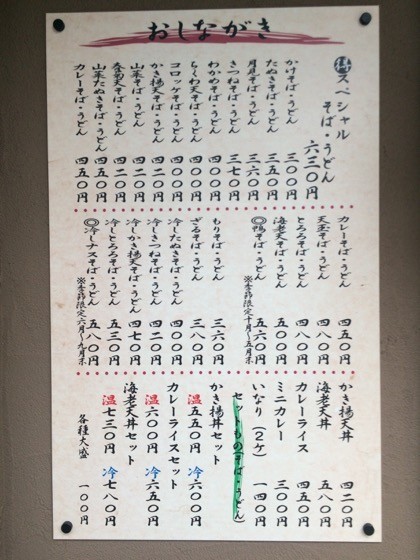 おしながき
スペシャル
そば・うどん 六三〇円
かけそば・うどん 三〇〇円
たぬきそば・うどん 三五〇円
月見そば・うどん 三六〇円
きつねそば・うどん 三七〇円
わかめそば・うどん 四〇〇円
ちくわ天そば・うどん 四〇〇円
コロッケそば・うどん 四〇〇円
かき揚天そば・うどん 四二〇円
山菜そば・うどん 四二〇円
春菊天そば・うどん 四二〇円
山菜たぬきそば・うどん 四五〇円
カレーそば・うどん 四五〇円
カレーそば・うどん 四五〇円
天玉そば・うどん 四八〇円
とろろそば・うどん
海老天そば・うどん 五〇〇円
◎鴨そば・うどん 五六〇円
※季節限定十月〜五月末
もりそば・うどん 三六〇円
ざるそば・うどん 三八〇円
冷したぬきそば・うどん 四〇〇円
冷しきつねそば・うどん 四二〇円
冷しかき揚天そば・うどん 四七〇円
冷しとろろそば・うどん 五三〇円
◎冷しナスそば・うどん 五八〇円
※季節限定六月〜九月末
かき揚天丼 四二〇円
海老天丼 五八〇円
カレーライス 四五〇円
ミニカレー 三〇〇円
いなり(2ケ) 一四〇円
セットもの(そば・うどん)
かき揚丼セット
温 五五〇円 冷 六〇〇円
カレーライスセット
温 六〇〇円 冷 六五〇円
海老天丼セット
温 七三〇円 冷 七八〇円
各種大盛 一〇〇円